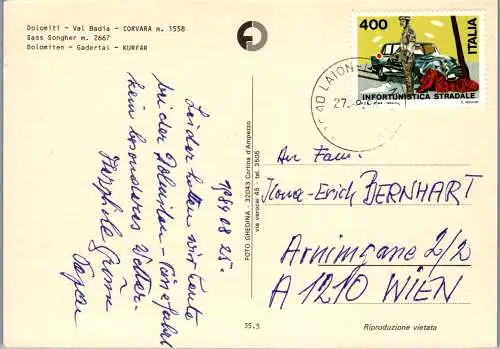 Dolomiti - Val Badia - CORVARA m. 1558
Sass Songher m. 2667
Dolomiten - Gadertal - KURFAR
1984 08 25.
Leider hatten wir heute
bei der Dolomiten-Rundfahrt
kein besonderes Wetter.
Herzliche Grüße
FOTO GHEDINA - 32043 Cortina d'Ampezzo
via verocai 45 - tel. 3505
400
ITALIA
INFORTUNISTICA STRADALE
LAION
27.
An Fam.
Ilona-Erich BERNHART
Arnimgasse 2/2
A 1210 WIEN
35.5
Riproduzione vietata